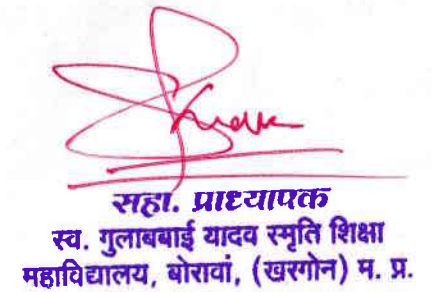 सहा. प्राध्यापक
स्व. गुलाबबाई यादव स्मृति शिक्षा
महाविद्यालय, बोरावां, (खरगोन) म. प्र.